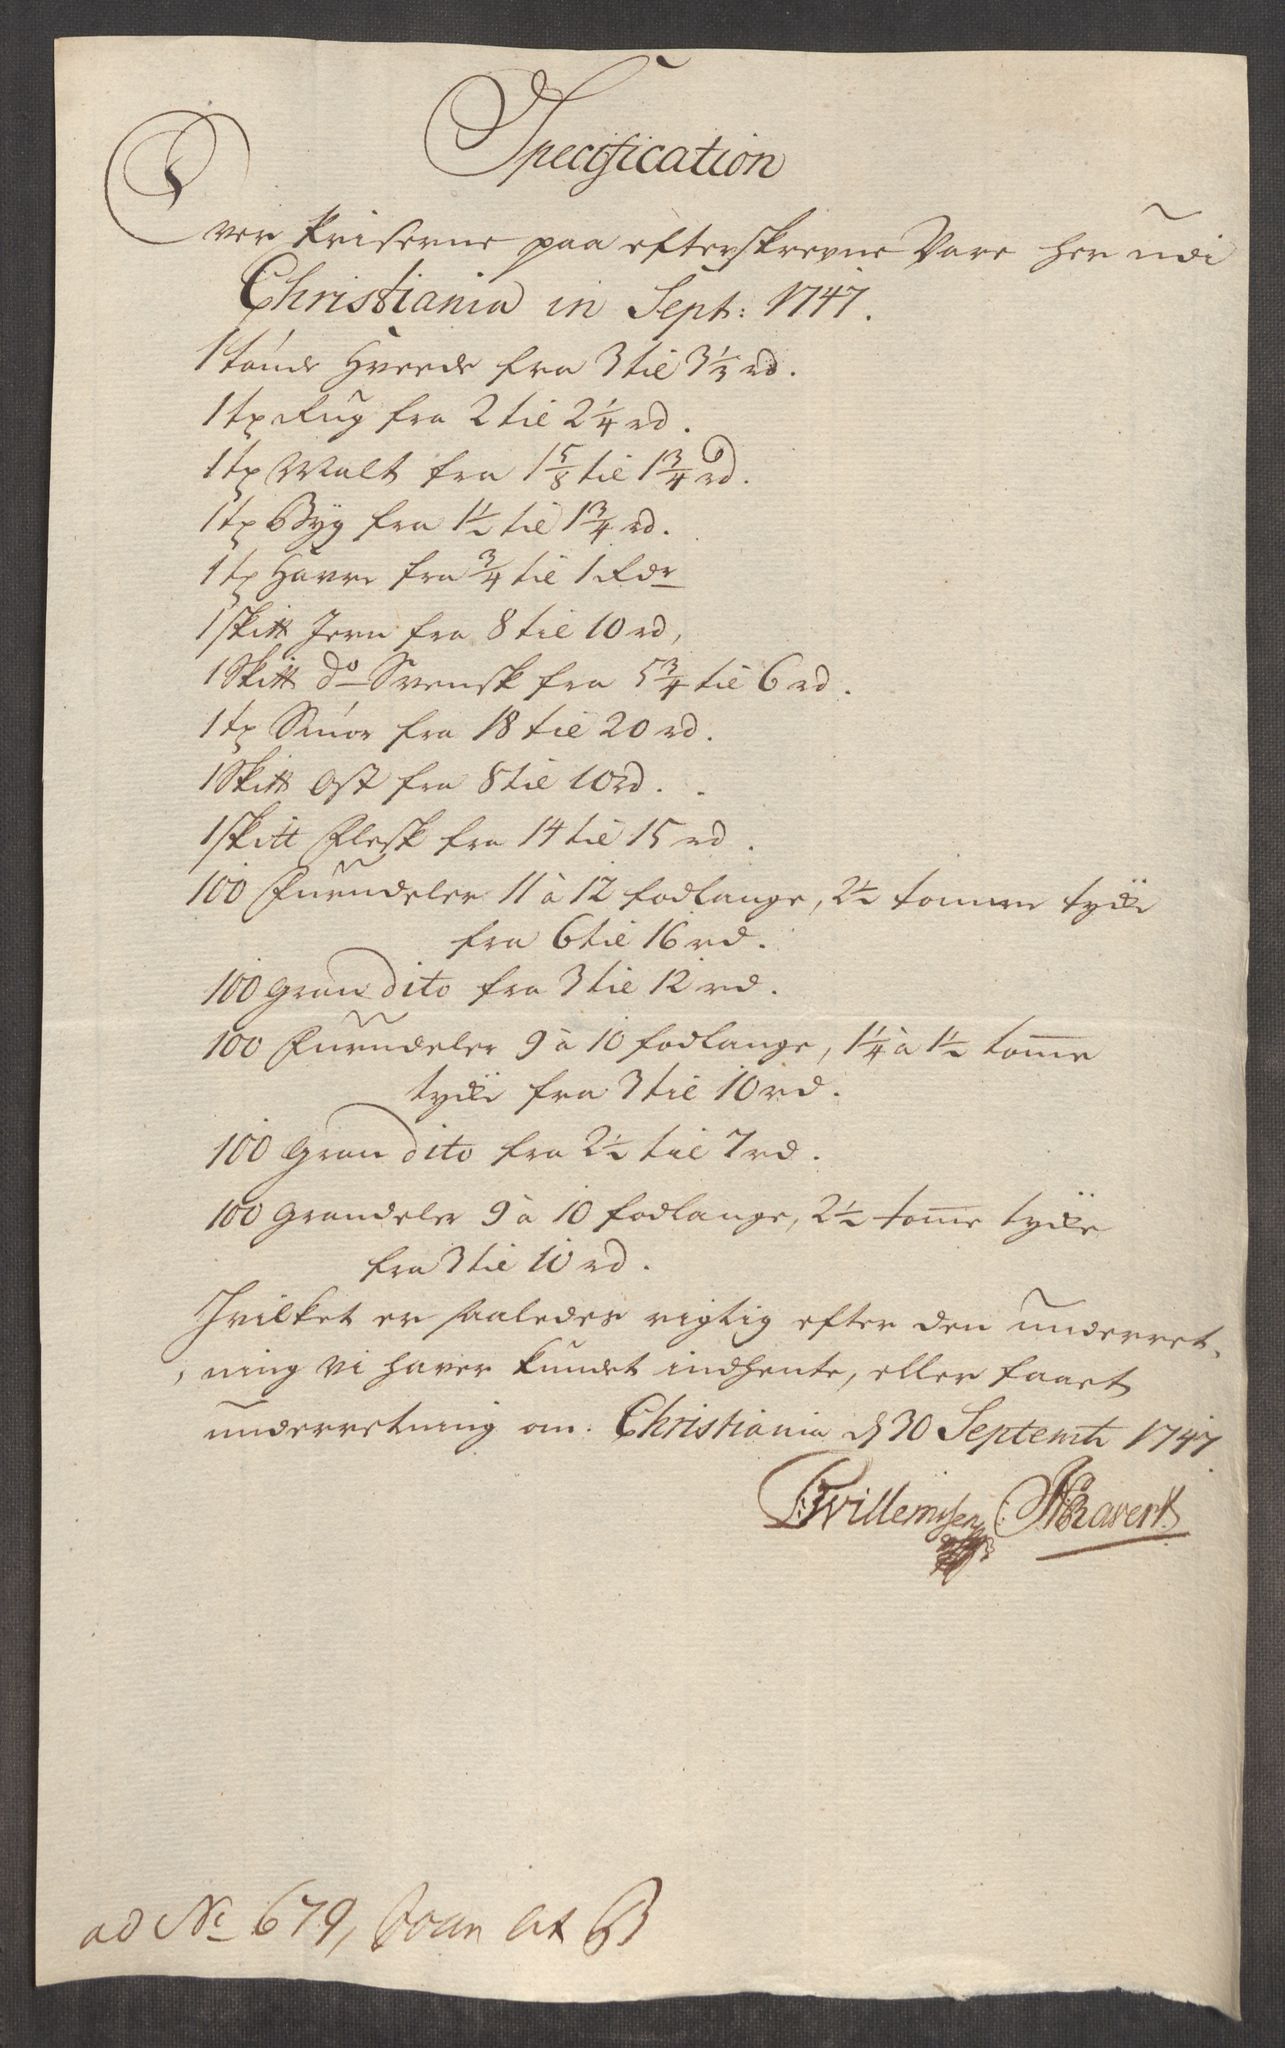 Specification
Over Priserne paa efterskrevne Vare her udi
Christiania in Sept: 1747.
1 tønde Hveede fra 3 til 3 1/3 rd.
1 tø Rug fra 2 til 2 1/4 rd.
1 tø Malt fra 1 5/8 til 1 3/4 rd.
1 tø Byg fra 1 1/2 til 1 3/4 rd.
1 tø Havre fra 3/4 til 1 Rdr
1 sk℔ Jern fra 8 til 10 rd,
1 Sk℔ do Svensk fra 5 3/4 til 6 rd.
1 tø Smør fra 18 til 20 rd.
1 Sk℔ Ost fra 8 til 10 rd.
1 sk℔ Flesk fra 14 til 15 rd.
100 Furudeler 11 à 12 fodlange, 2 1/2 tomme tycke
fra 6 til 16 rd.
100 Gran dito fra 3 til 12 rd.
100 Furudeler 9 à 10 fodlange, 1 1/4 à 1 1/2 tom̄e
tycke fra 3 til 10 rd.
100 Gran dito fra 2 1/2 til 7 rd.
100 Grandeler 9 à 10 fodlange, 2 1/2 tom̄e tycke
fra 3 til 10 rd.
Hvilket er saaledes rigtig efter den underret-
ning vi haver kundet indhente, eller faaet
underretning om. Christiania d 30 Septembr 1747.
Willemssen Ravert
ad No 679, Fogn Lit B